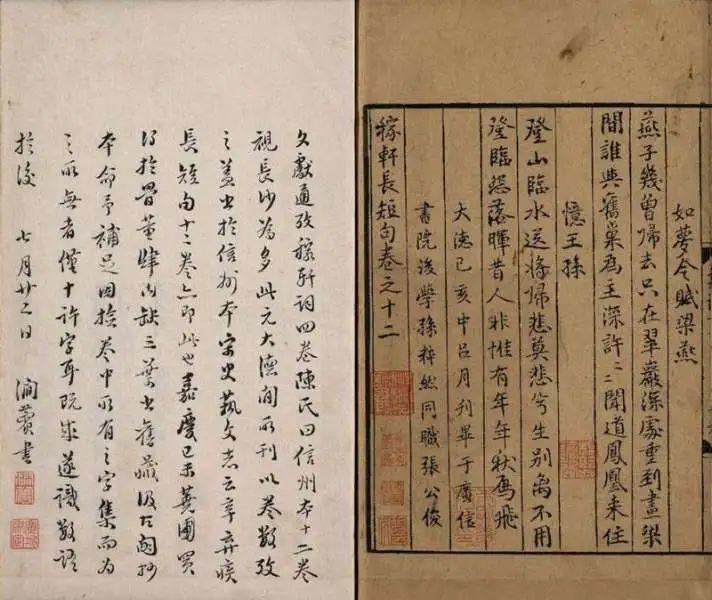 如夢令賦梁燕
燕子幾曾歸去只在翠巖深處重到畫梁
間誰與舊巢為主深許〻〻聞道鳳凰來住
憶王孫
登山臨水送將歸悲莫悲兮生別離不用
登臨怨落暉昔人非惟有年年秋鴈飛
大德己亥中呂月刊畢于廣信
書院後學孫粹然同職張公俊
稼軒長短句卷之十二
文獻通攷稼軒詞四卷陳氏曰信州本十二卷
視長沙為多此元大德間所刊以卷數攷
之蓋出於信州本宋史藝文志云辛棄疾
長短句十二卷亦即此也嘉慶己未蕘圃買
得於骨董肆內缺三葉出舊藏汲古閣抄
本命予補足因檢卷中所有之字集而為
之所無者僅十許字耳既成遂識數語
於後 七月廿二日 澗薲書